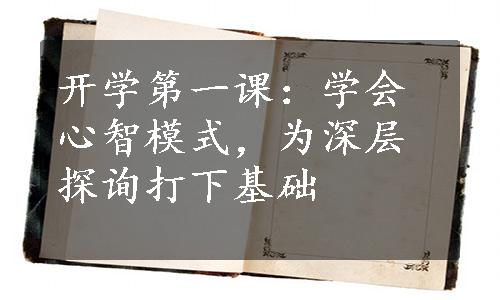 开学第一课：学会
心智模式，为深层
探询打下基础